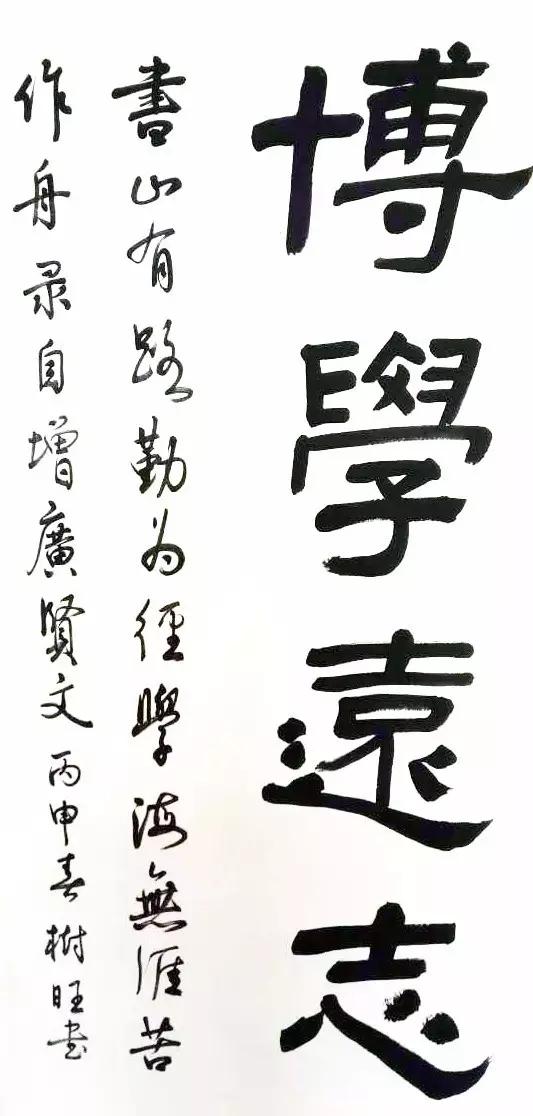 博學遠志
書山有路勤为徑學海無涯苦
作舟录自增廣賢文丙申春樹旺书